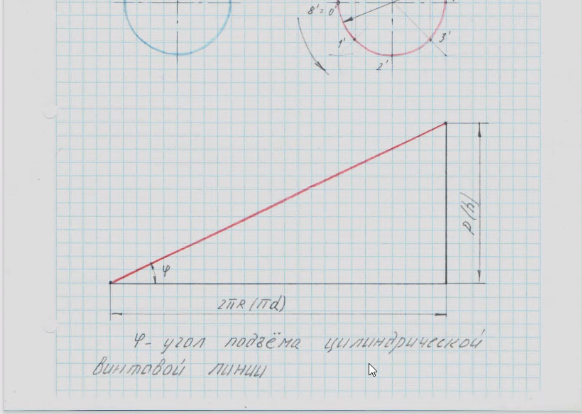 8'≡0'
1'
2'
3'
φ
P(h)
2πR(πd)
φ- угол подъёма цилиндрической
винтовой линии